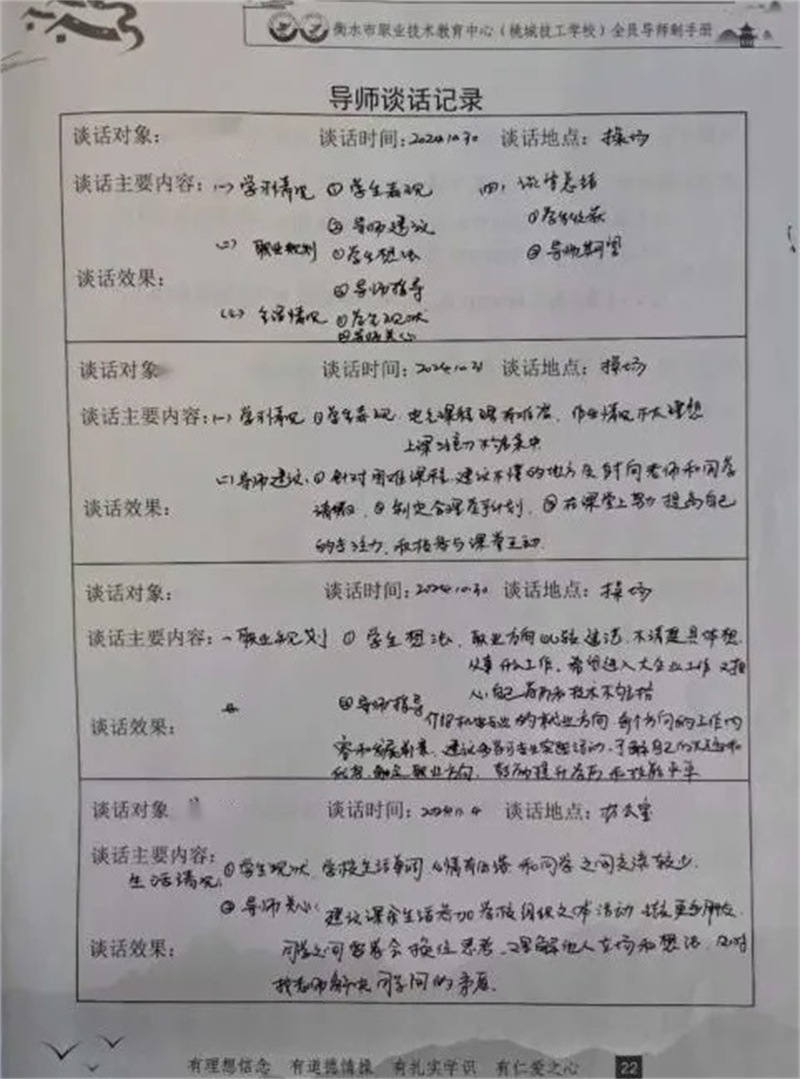 衡水市职业技术教育中心（桃城技工学校）全员导师制手册
导师谈话记录
谈话对象： 谈话时间：2024.10.30 谈话地点：操场
谈话主要内容：(一) 学习情况 ① 学生表现 (四) 谈话总结
② 导师建议 ① 学生收获
(二) 职业规划 ① 学生想法 ② 导师期望
谈话效果：
② 导师指导
(三) 生活情况 ① 学生现状
② 导师关心
谈话对象 谈话时间：2024.10.31 谈话地点：操场
谈话主要内容：(一) 学习情况 ① 学生表现，课程 有难度，作业情况不太理想
上课注意力不够集中
(二) 导师建议，① 针对困难课程，建议不懂的地方及时向老师和同学
谈话效果： 请教，② 制定合理学习计划，③ 在课堂上努力提高自己
的专注力，积极参与课堂互动.
谈话对象： 谈话时间：2024.10.30 谈话地点：操场
谈话主要内容：一 职业规划 ① 学生想法，职业方向比较迷茫，不清楚具体想
从事什么工作，希望进入大企业工作 又担
心自己 和技术不够格
② 导师指导
介绍 专业的就业方向 每个方向的工作内
谈话效果： 容和发展前景，建议 专业实践活动，了解自己的
，确定职业方向，鼓励提升 和技能水平
谈话对象 谈话时间：2024.11.4 谈话地点：办公室
谈话主要内容：
生活情况 ① 学生现状，学校生活 和同学之间交流较少.
② 导师关心 建议课余生活参加学校组织文体活动 更多朋友.
谈话效果： 同学之间 学会换位思考，理解他人立场和想法，及时
找老师解决同学间的矛盾.
有理想信念 有道德情操 有扎实学识 有仁爱之心 22